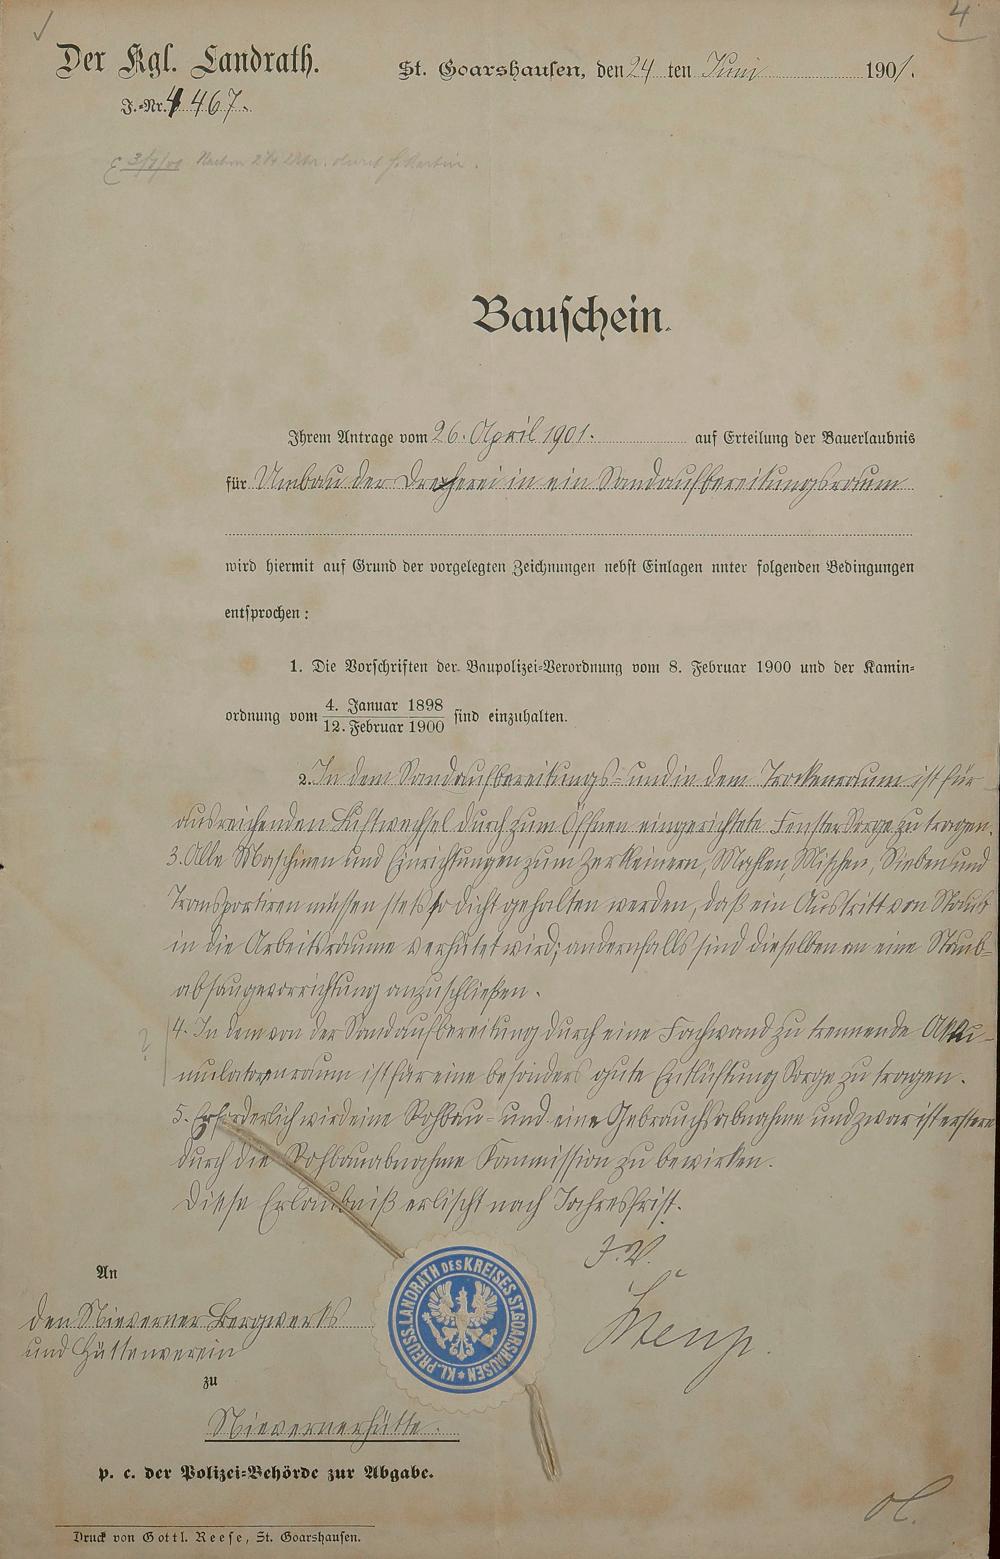 4
Der Kgl. Landrath.
St. Goarshausen, den 24 ten Juni 1901.
J.-Nr. 4467.
3/7/01
Bauschein.
Ihrem Antrage vom 26. April 1901. auf Erteilung der Bauerlaubnis
für Umbau der Dreherei in ein Sandaufbereitungsraum
wird hiermit auf Grund der vorgelegten Zeichnungen nebst Einlagen unter folgenden Bedingungen
entsprochen:
1. Die Vorschriften der Baupolizei-Verordnung vom 8. Februar 1900 und der Kamin-
ordnung vom 4. Januar 1898 / 12. Februar 1900 sind einzuhalten.
2. In dem Sandaufbereitungs- und in dem Trockenraum ist für
ausreichenden Luftwechsel durch zum Öffnen eingerichtete Fenster Sorge zu tragen.
3. Alle Maschinen und Einrichtungen zum Zerkleinern, Mahlen, Mischen, Sieben und
Transportiren müssen stets so dicht gehalten werden, daß ein Austritt von Staub
in die Arbeitsräume verhütet wird; andernfalls sind dieselben an eine Staub-
absaugevorrichtung anzuschließen.
4. In dem von der Sandaufbereitung durch eine Fachwand zu trennende Akku-
mulatorenraum ist für eine besonders gute Entlüftung Sorge zu tragen.
5. Erforderlich wird eine Rohbau- und eine Gebrauchsabnahme und zwar ist erstere
durch die Rohbauabnahme Kommission zu bewirken.
Diese Erlaubniß erlischt nach Jahresfrist.
J. V.
An
den Nieverner Bergwerks
und Hüttenverein
zu
Nievernerhütte.
KL. PREUSS. LANDRATH DES KREISES ST. GOARSHAUSEN
p. c. der Polizei-Behörde zur Abgabe.
Druck von Gottl. Reese, St. Goarshausen.